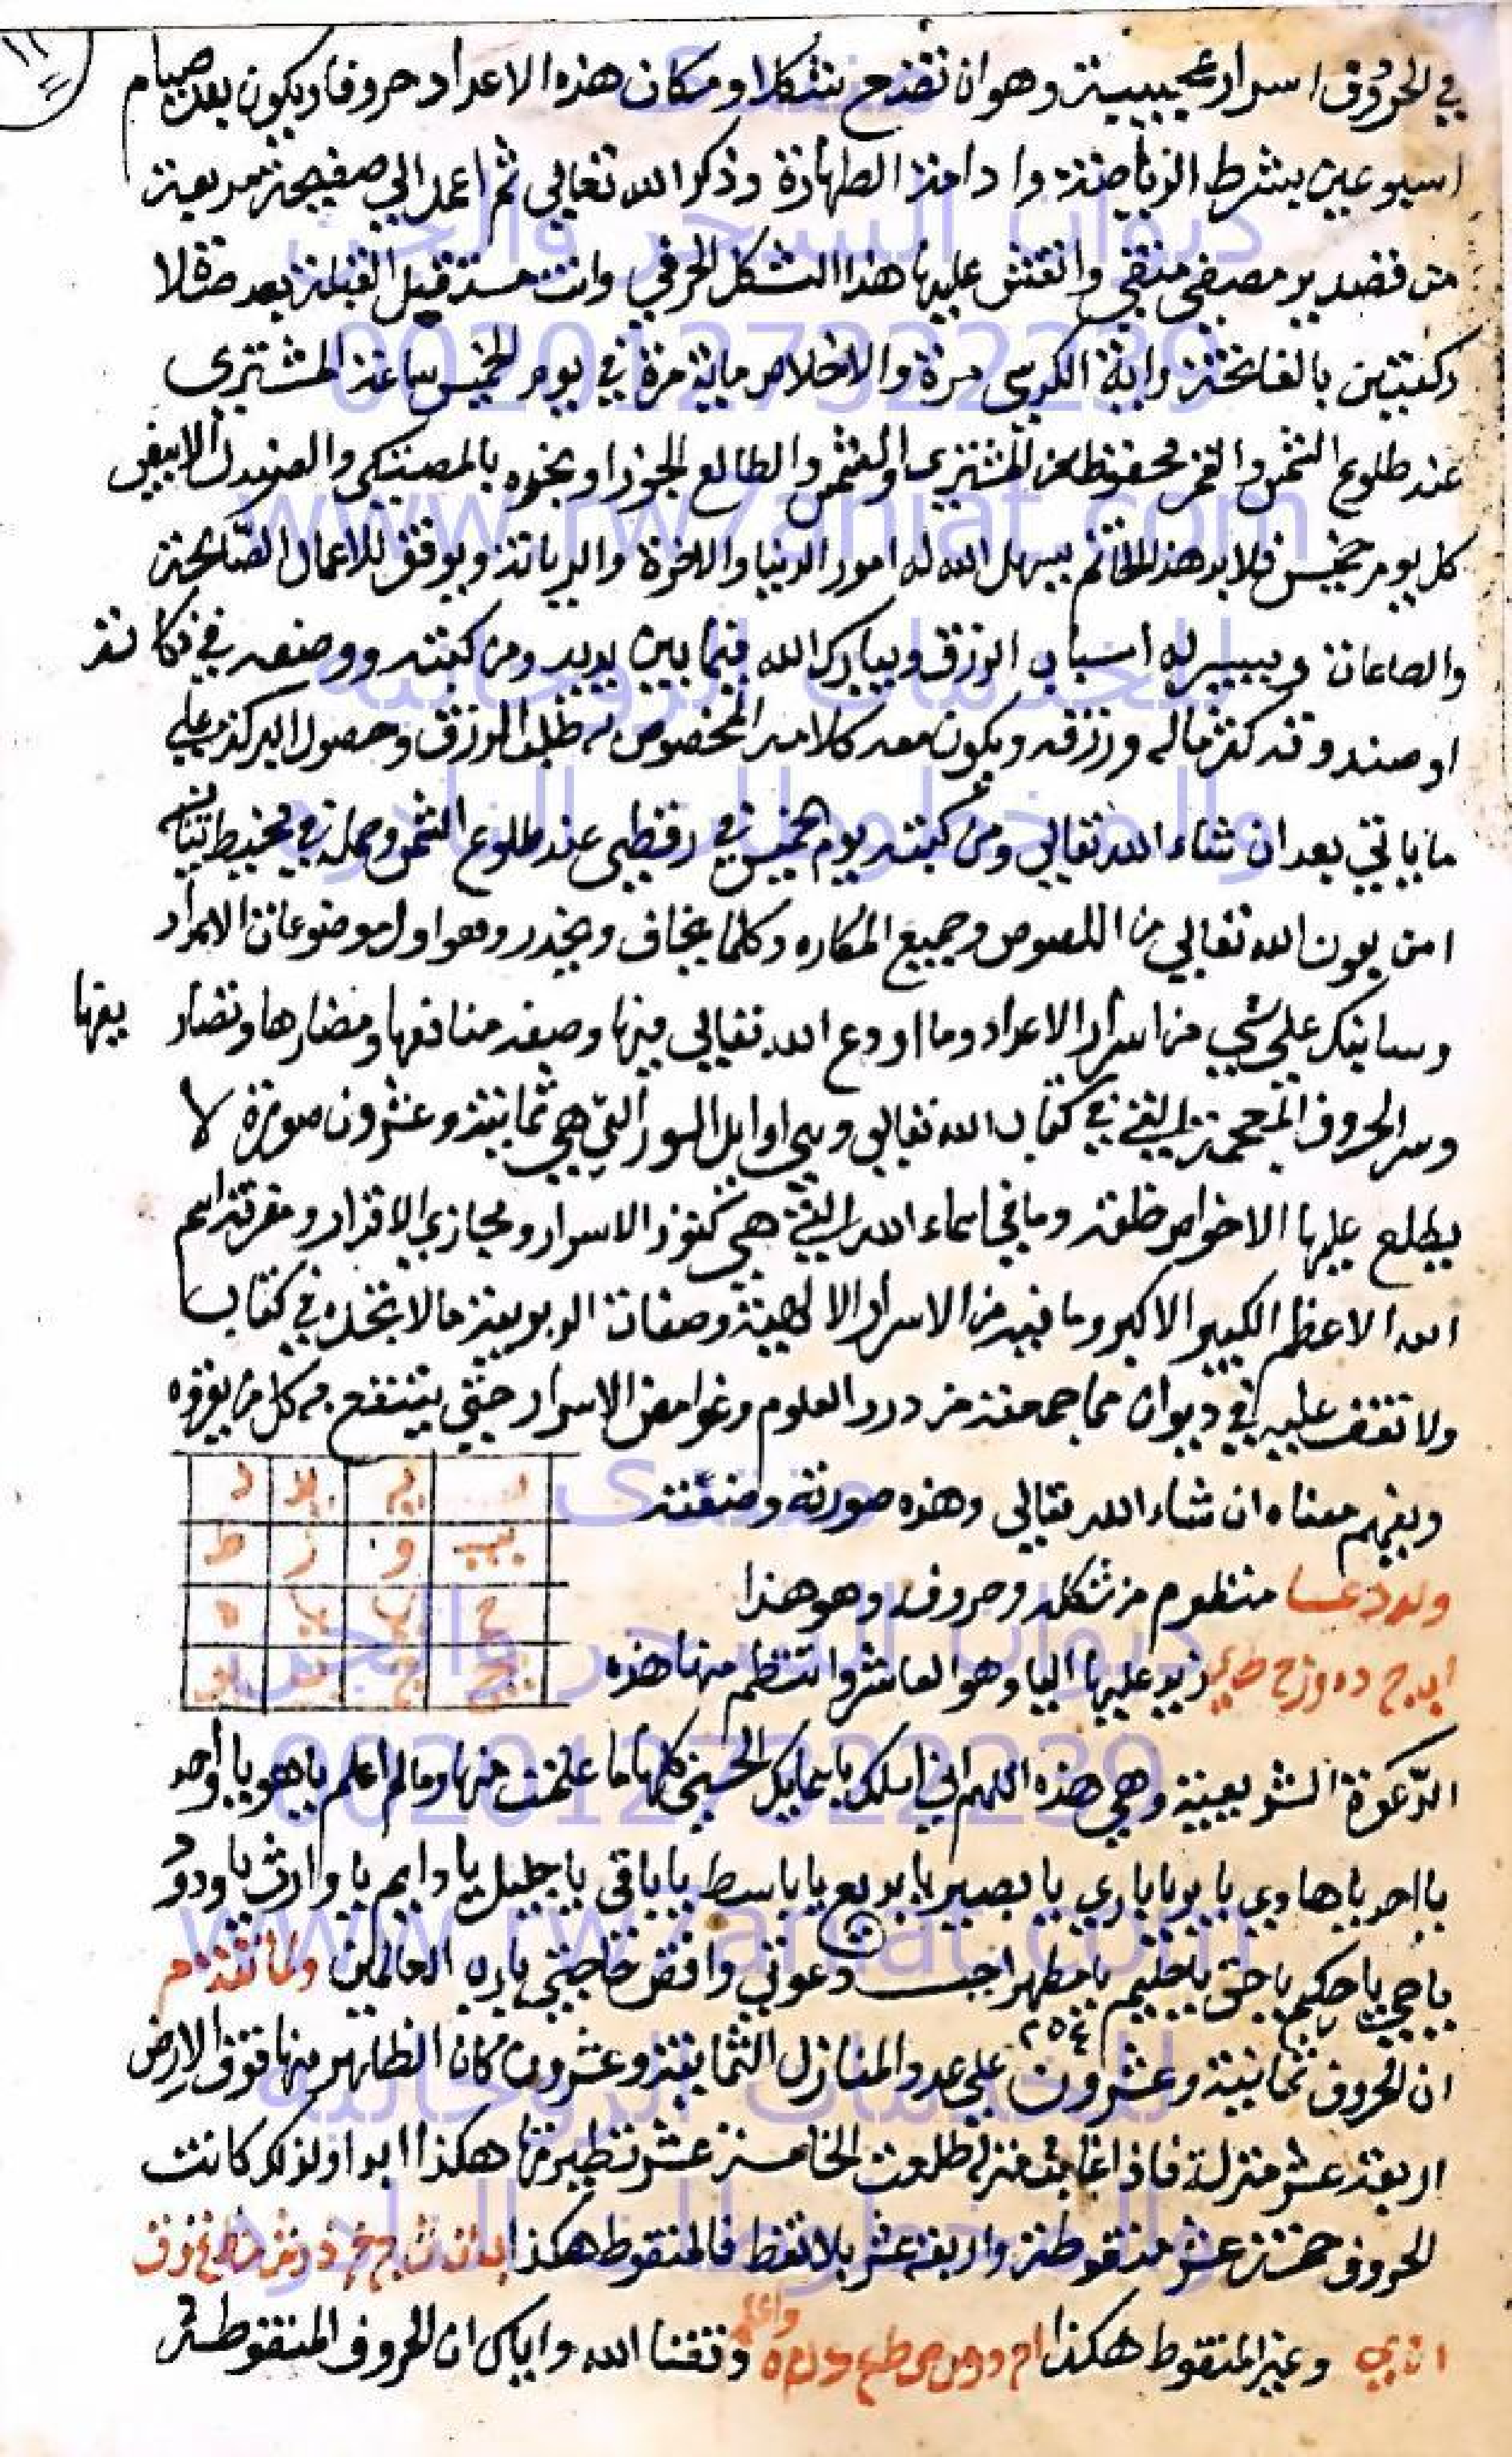 ١١
في الحروف اسرار عجيبة وهو ان تضع شكلا ومكان هذه الاعداد حروفا ويكون بعد صيام
اسبوعين بشرط الرياضة وادامة الطهارة وذكر الله تعالي ثم اعمد الي صفيحة مربعة
من مصفي منقي وانقش عليها هذا الشكل الحرفي وانت مستقبل القبلة بعد صلا
ركعتين بالفاتحة واية الكرسي مرة والاخلاص ماية مرة في يوم الخميس ساعة المشتري
عند طلوع الشمس والقمر محفوظ من المشتري والشمس والطالع الجوزا وبخوره بالمصتكي والصندل الابيض
كل يوم خميس هذا الخاتم يسهل الله له امور الدنيا والاخرة والديانة ويوفق للاعمال الصالحة
والطاعات وييسر له اسباب الرزق ويبارك الله فيما بين يديه ومن كتبه ووضعه في دكانه
او صندوقه كثر ماله ورزقه ويكون معه كلامه المخصوص به طلب الرزق وحصول البركة علي
ما ياتي بعد ان شاء الله تعالي ومن كتبه يوم الخميس في رق ظبي عند طلوع الشمس وحمله في
امن بعون الله تعالي من اللصوص وجميع المكاره وكلما يخاف ويحذر وهو اول موضوعات الاعداد
وسانبيك علي شي من اسرار الاعداد وما اودع الله تعالي فيها وصفة منافعها ومضارها
وسر الحروف المعجمة التي في كتاب الله تعالي وهي اوايل السور التي هي ثمانية وعشرون صورة لا
يطلع عليها الا خواص خلقه وما في اسماء الله التي هي كنوز الاسرار ومجازي الاقدار ومعرفة اسم
الله الاعظم الكبير الاكبر وما فيه من الاسرار الالهية وصفات الربوبية ما لا تجده في كتاب
ولا تقف عليه في ديوان مما جمعته من درر العلوم وغوامض الاسرار حتي ينتفع به كل من يقروه
ويفهم معناه ان شاء الله تعالي وهذه صورته وصفته
د
ط ز و يب
ه
وله دعا منظوم من شكله وحروفه وهو هذا
اب ج د ه و ز ح ط ي زيد عليها اليا وهو العاشر وانتظم منها هذه
الدعوة الشريفة وهي هذه اللهم اني اسلك باسمايك الحسني كلها ما علمت منها وما لم اعلم يا هو يا واحد
يا احد يا هادي يا بر يا باري يا بصير يا بديع يا باسط يا باقي يا جليل يا دايم يا وارث يا ودود
يا حي يا حكيم يا حق يا حليم يا مطهر اجب دعوتي واقض حاجتي يا رب العالمين ولما تقدم
٢٥٤
ان الحروف ثمانية وعشرون علي عدد المنازل الثمانية وعشرون كان الظاهر منها فوق الارض
اربعة عشر منزلة فاذا غابت منزلة طلعت الخامسة عشر نظيرتها هكذا ابدا ولذلك كانت
الحروف خمسة عشر منقوطة واربعة عشر بلا نقط فالمنقوط هكذا ب ت ث ج خ ذ ز ش ض ظ غ ف ق
ن ي وغير المنقوط هكذا ا ح د ر س ص ط ع ك ل م ه واعلم وفقنا الله واياك ان الحروف المنقوطة
منتدى
ديوان السحر والجن
00201273222239
www.rw7aniat.com
للخدمات الروحانية
والمخطوطات النادرة
منتدى
ديوان السحر والجن
00201273222239
www.rw7aniat.com
للخدمات الروحانية
والمخطوطات النادرة